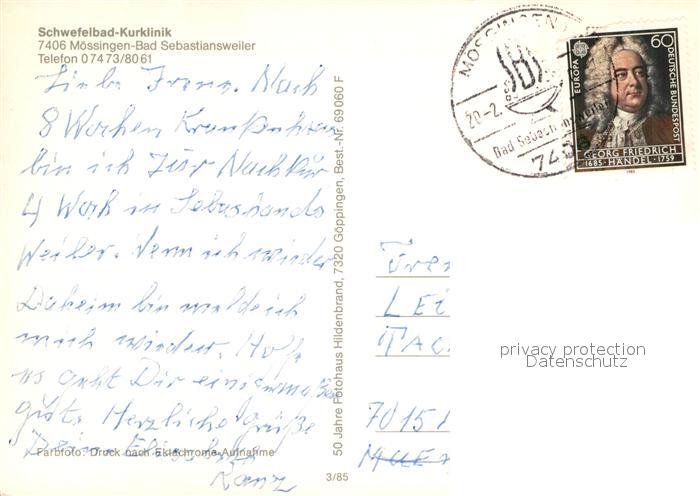 Schwefelbad-Kurklinik
7406 Mössingen-Bad Sebastiansweiler
Telefon 07473/8061
Liebe Nach
8 Wochen Krankenhaus
bin ich zur Nachkur
4 Woch in Sebastians
Weiler. Wenn ich wieder
Daheim bin melde ich
mich wieder. Hoffe
es geht Dir einigermaßen
gut. Herzliche Grüße
Deine
Farbfoto: Druck nach Ektachrome-Aufnahme
3/85
50 Jahre Fotohaus Hildenbrand, 7320 Göppingen, Best.-Nr. 69060 F
MÖSSINGEN
20.-2.
Bad Sebastiansweiler
EUROPA
60
DEUTSCHE BUNDESPOST
GEORG FRIEDRICH
1685 · HÄNDEL · 1759
LEI
7015
privacy protection
Datenschutz